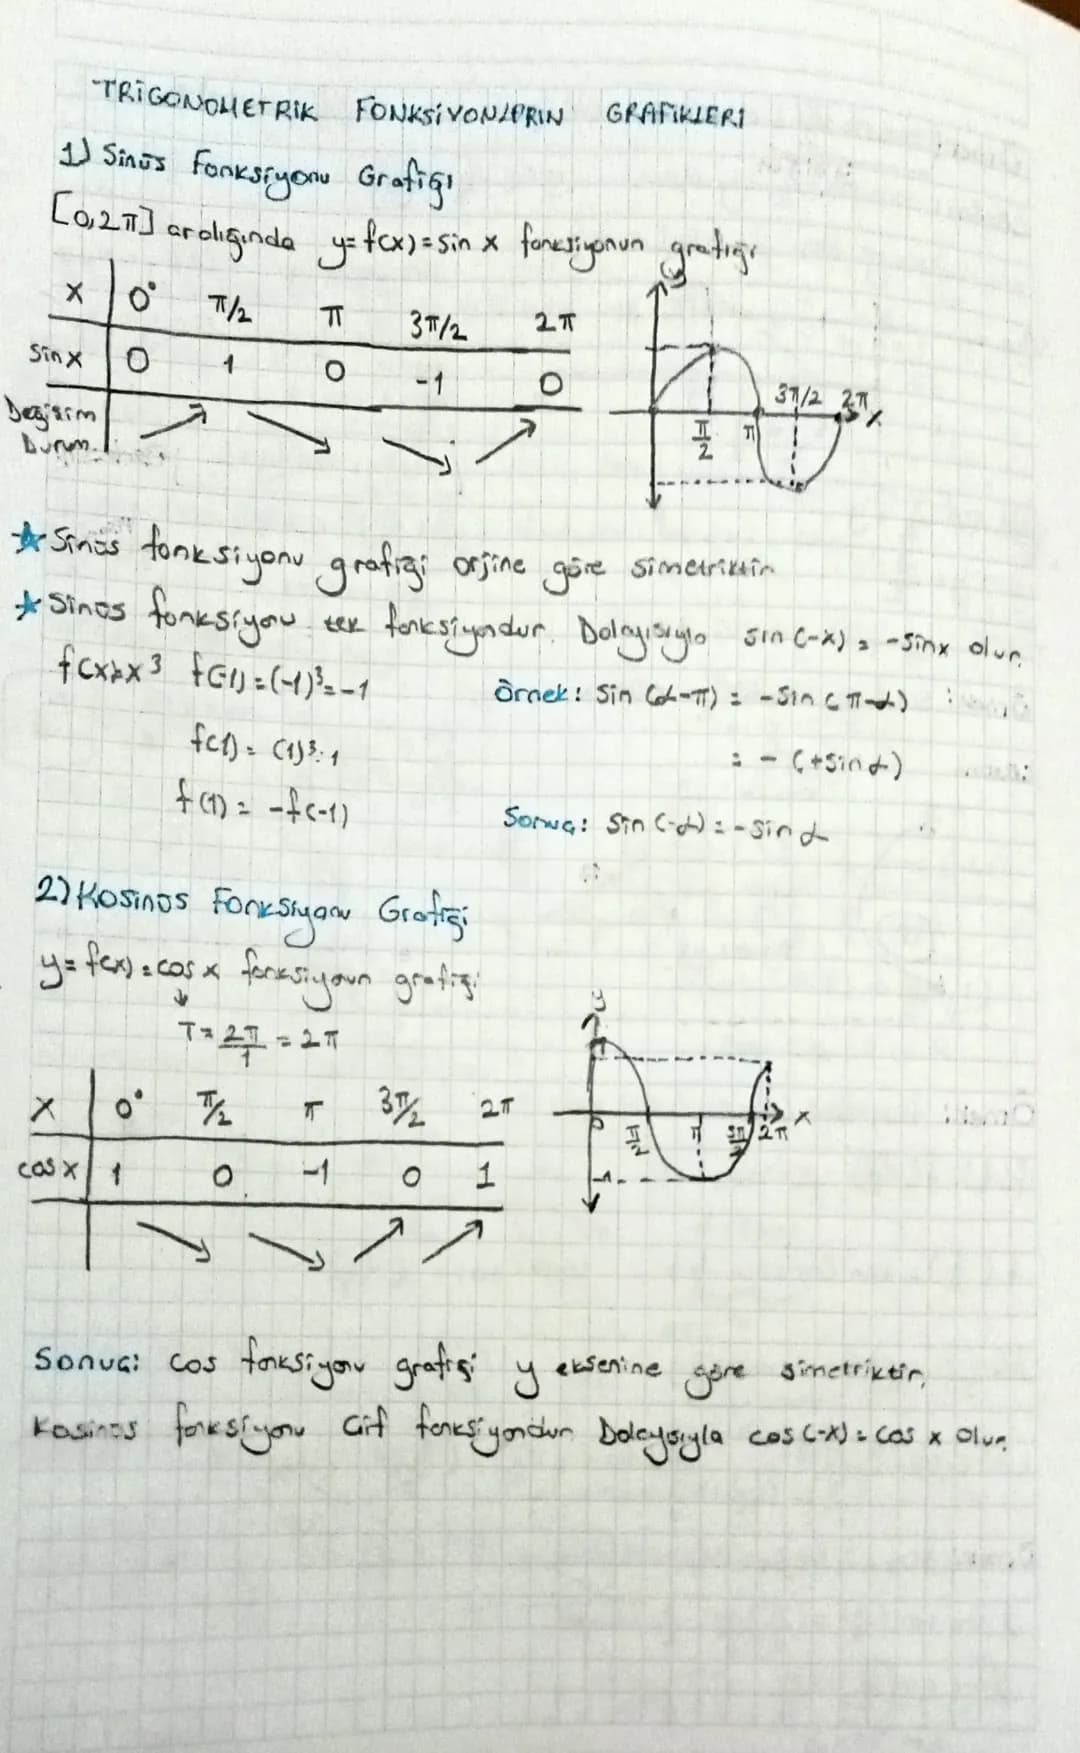 TRİGONOMETRİK FONKSİYONLARIN GRAFIKLERI
1) Sinüs Fonksiyonu Grafiği
[0,2π] aralığında y=f(x)=sin x fonksiyonun grafiği
x 0° π/2 π 3π/2 2π
Sin x 0 1 0 -1 0
Değişim
Durum.
y
3π/2 2π x
π/2 π
☆ Sinüs fonksiyonu grafiği orjine göre simetriktir
☆ Sinüs fonksiyonu tek fonksiyondur. Dolayısıyla sin (-x) = -sinx olur.
f(x)=x³ f(-1)=(-1)³=-1 Örnek: Sin (α-π) = -Sin (π-α)
f(1) = (1)³=1 = - (+Sinα)
f(1) = -f(-1) Sonuç: Sin (-α) = -Sin α
2) Kosinüs Fonksiyonu Grafiği
y=f(x)=cos x fonksiyoun grafiği
T=2π/1 = 2π
y
x 0° π/2 π 3π/2 2π
x
0 π/2 π 3π/2 2π
cos x 1 0 -1 0 1
-1
Sonuç: cos fonksiyonu grafiği y eksenine göre simetriktir.
Kosinüs fonksiyonu Çift fonksiyondur Dolayısıyla cos (-x) = cos x olur.